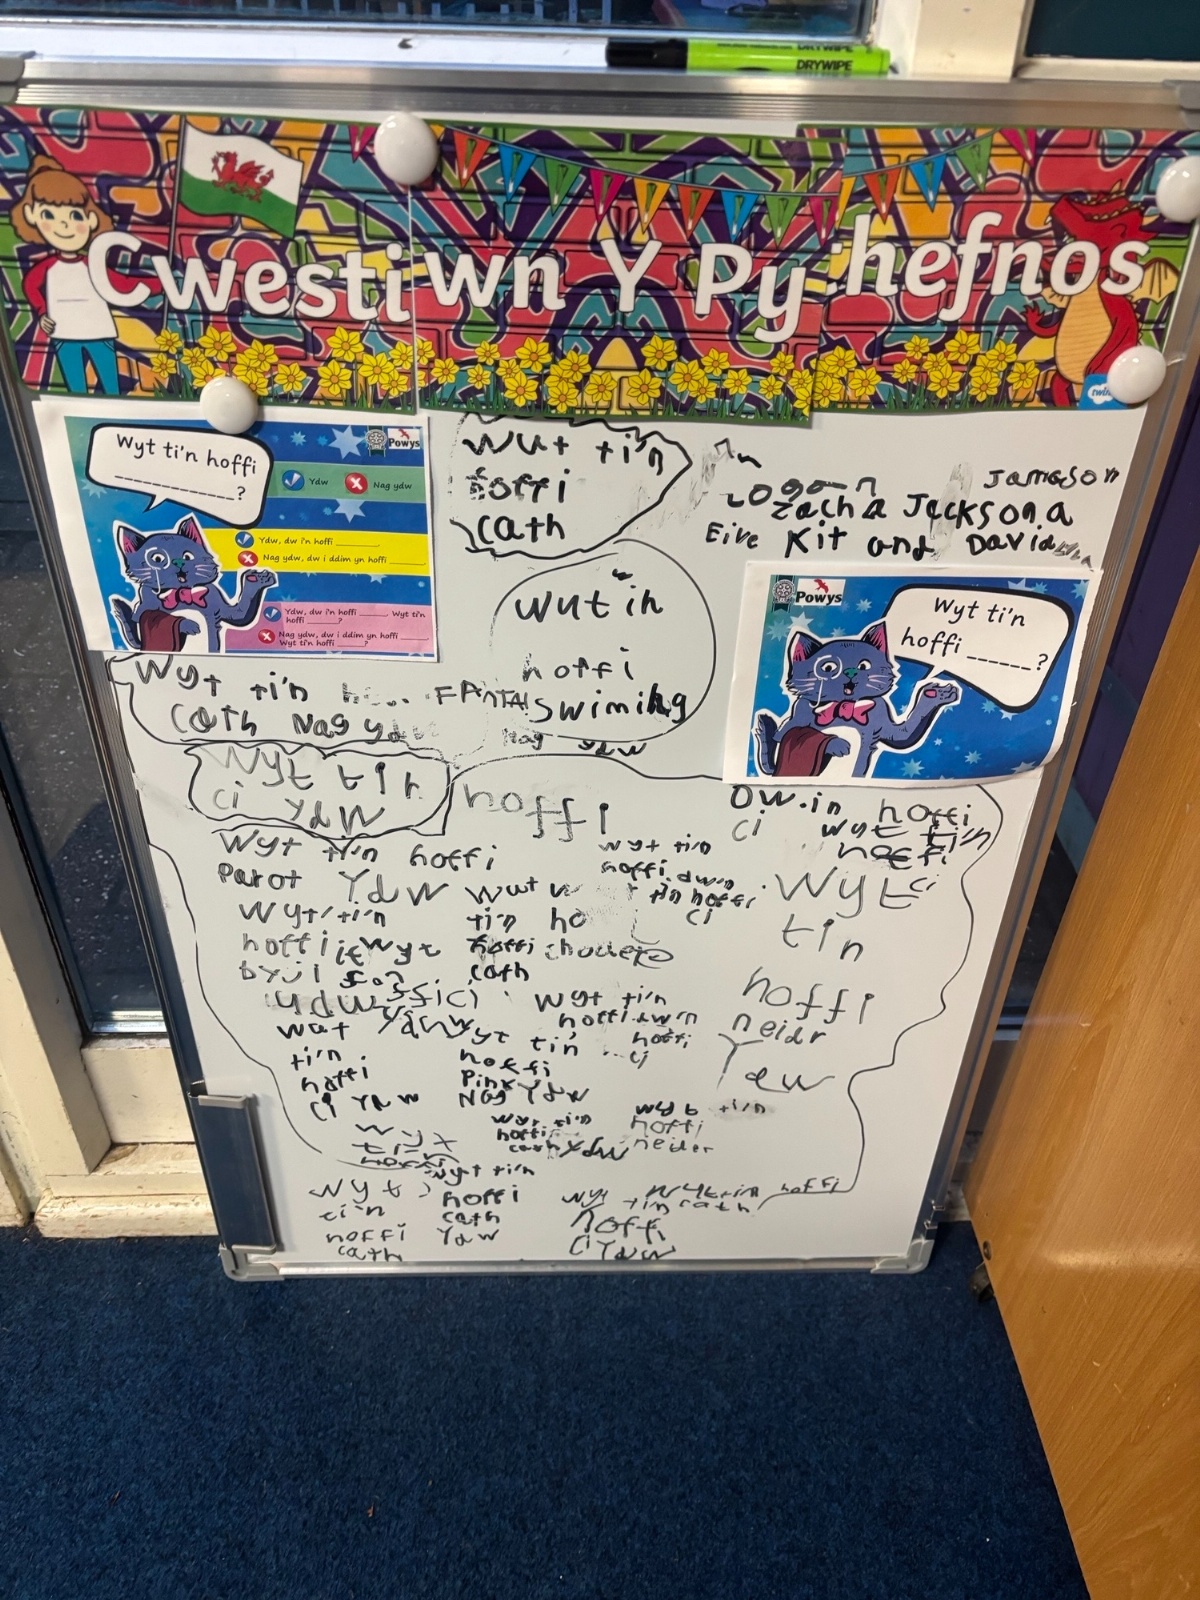 DRYWIPE
DRYWIPE
Cwestiwn Y Pythefnos
Wyt ti'n hoffi
__________?
Powys
Ydw
Nag ydw
Ydw, dw i'n hoffi ________.
Nag ydw, dw i ddim yn hoffi ______.
Ydw, dw i'n hoffi ______. Wyt ti'n
hoffi ______?
Nag ydw, dw i ddim yn hoffi ______
Wyt ti'n hoffi ______?
wut ti'n
hoffi
cath
Logan
Jameson
Zach a Jacksona
Eive Kit and David
wut in
hoffi
swimikg
Nag ydw
Powys
Wyt ti'n
hoffi ______?
Wyt ti'n
cath Nag
Wyt tin
ci Ydw
hoffi
Ow.in hoffi
ci wyt ti'n
hoffi
ci
Wyt ti'n hoffi
Parot Ydw
wyt ti'n
hoffi dwin
tin hoffi
ci
Wyt ti'n
hoffi
wut
ti'n ho
hoffi
cath
Wyt
tin
hoffi
neidr
Ydw
wyt ti'n
hoffi dw'n
hoffi
ci
wat
ti'n
hoffi
ci Ydw
wyt tin
hoffi
Pinx Ydw
Nag
wyt ti'n
hoffi
cath Ydw
wyt ti'n
hoffi
neider
wyt
ti'n
hoffi
wyt ti'n
hoffi
cath
Ydw
wyt
ti'n
hoffi
cath
wyt tin hoffi
wyt tin cath
hoffi
ci Ydw